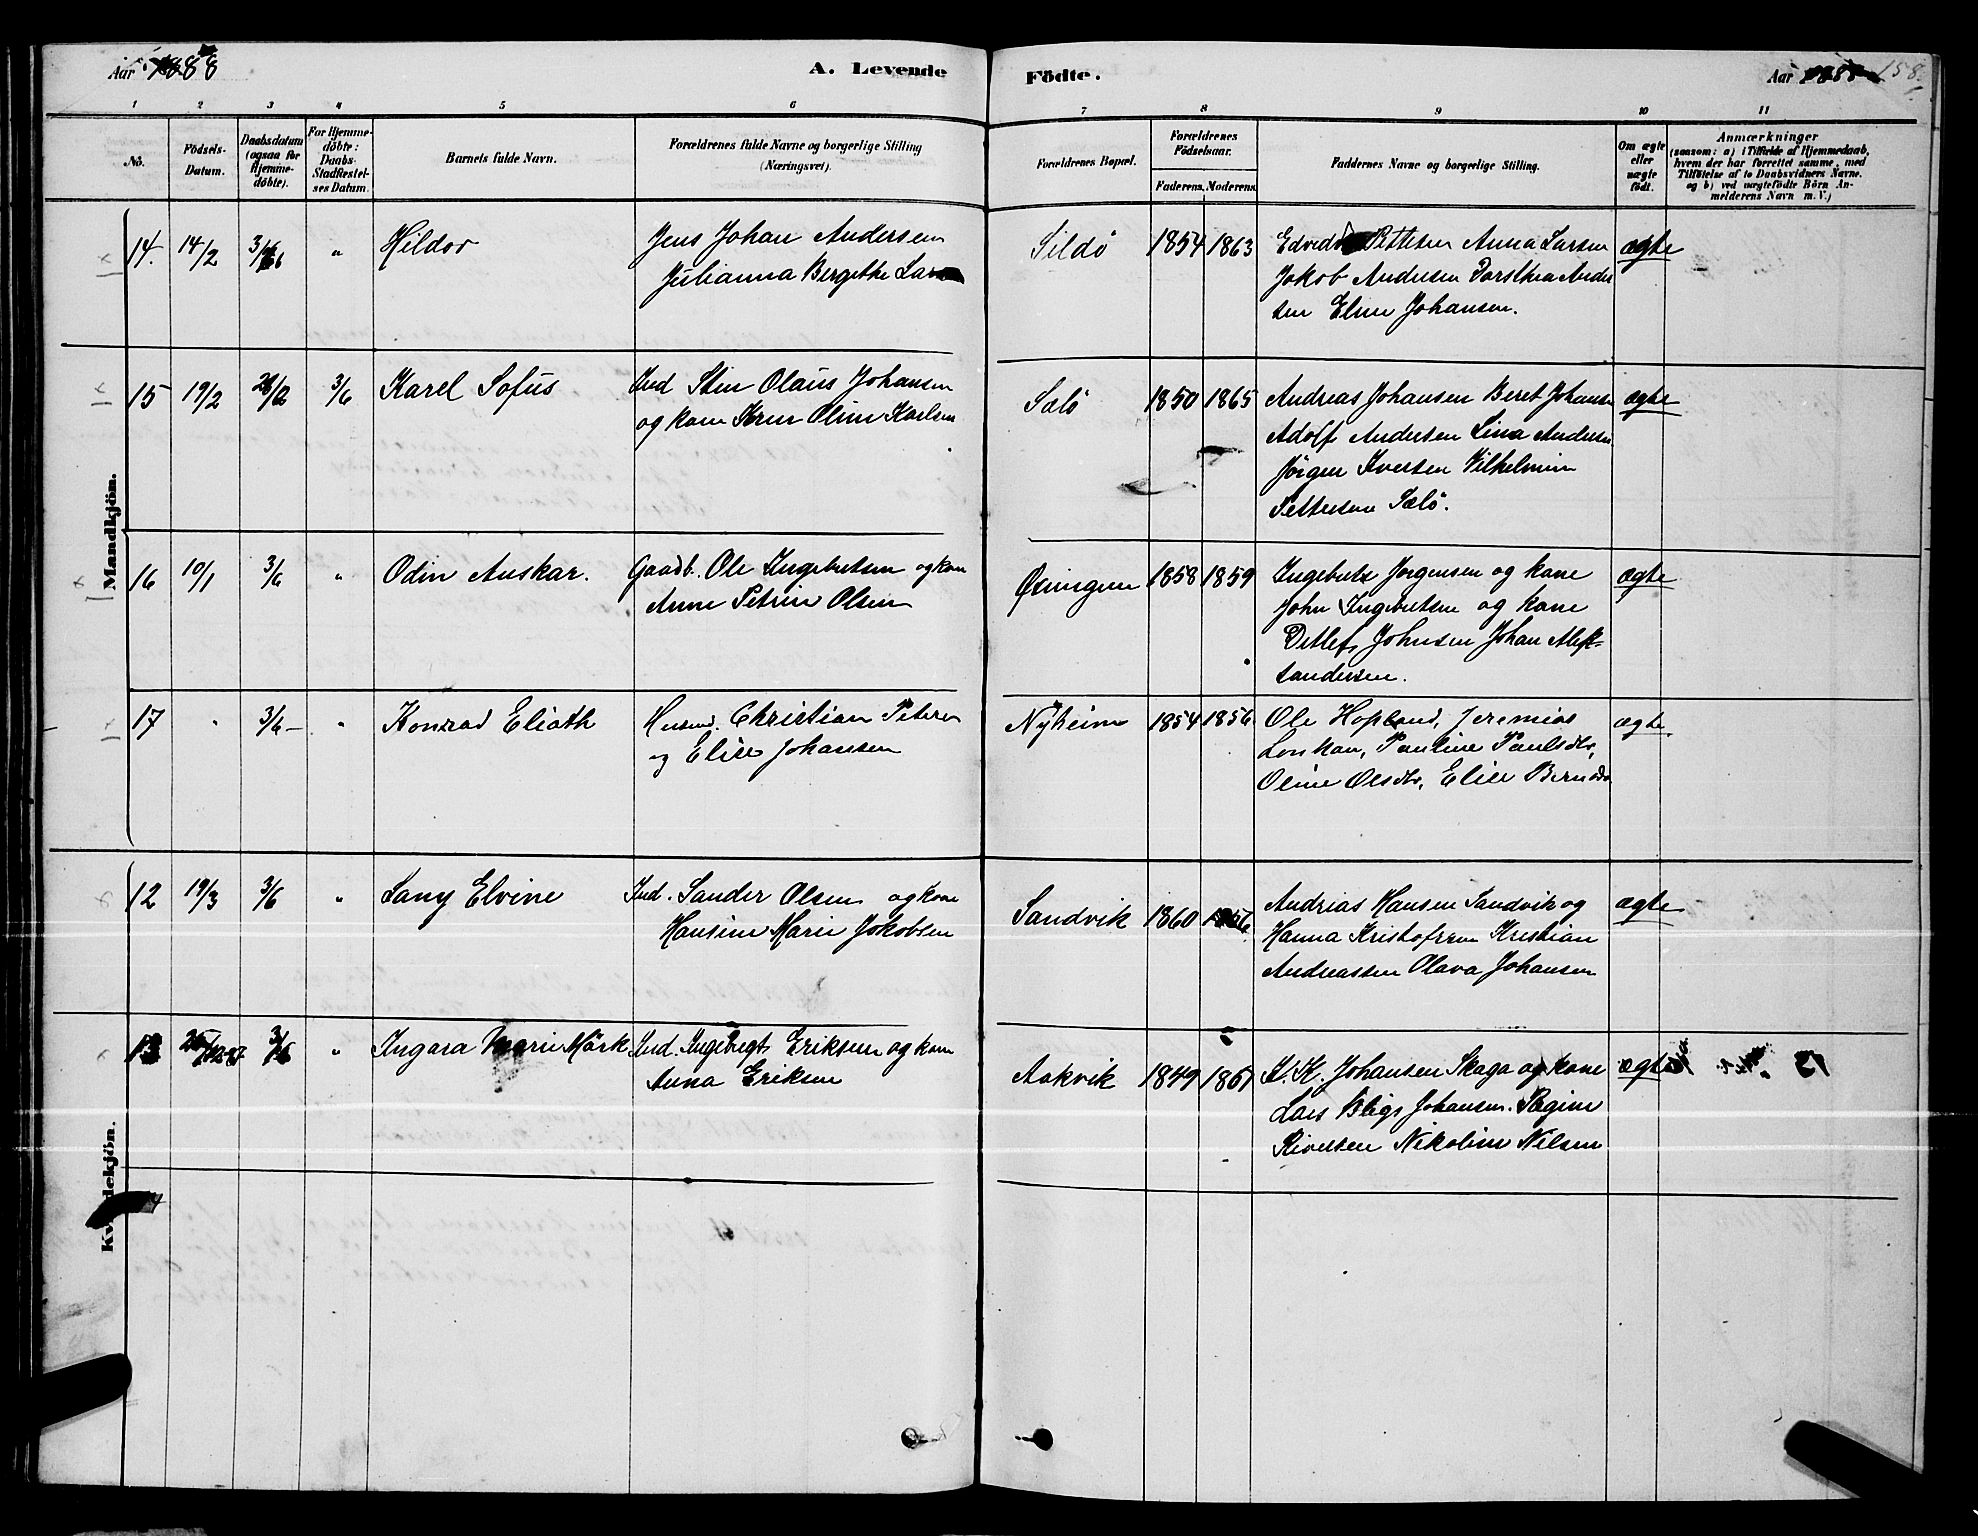 Aar 1888
A. Levende
Födte.
Aar 1888 158.
1 2 3 4 5 6 7 8 9 10 11
No.
Födsels-
Datum.
Daabsdatum
(ogsaa for
Hjemme-
döbte).
For Hjemme-
döbte:
Daabs-
Stadfæstel-
ses Datum.
Barnets fulde Navn.
Forældrenes fulde Navne og borgerlige Stilling
(Næringsvei).
Forældrenes Bopæl.
Forældrenes
Födselsaar.
Faderens. Moderens.
Faddernes Navne og borgerlige Stilling.
Om ægte
eller
uægte
födt.
Anmærkninger
(saasom: a) i Tilfælde af Hjemmedaab,
hvem der har forrettet samme, med
Tilföielse af to Daabsvidners Navne.
og b) ved uægtefödte Börn An-
melderens Navn m. V.)
Mandkjön.
14. 14/2 3/6 " Hildor
Jens Johan Andersen
Julianna Bergitte
Sildö 1854 1863
Pettersen Anna Larsen
Jakob Andersen Dorthea Ander
sen Eline Johansen.
ægte
15 19/2 26/2 3/6 Karel Sofus
Ind Sten Olaus Johansen
og kone Oline Karlsen
Sælö 1850 1865
Andreas Johansen Beret Johanse
Adolf Andersen Lina Andersen
Jörgen Iversen Vilhelmine
Pettersen Sælö.
ægte
16 10/1 3/6 " Odin Anskar.
Gaardb. Ole Ingebretsen og kone
Anne Petrine Olsen
Øxningen 1858 1859
Ingebrets Jørgensen og kone
John Ingebretsen og kone
Detlef Johnsen Johan Alek-
sandersen.
ægte
17 " 3/6 " Konrad Eliath
Husmd. Christian Petersen
og Elise Johansen
Nyheim 1854 1856
Ole Hopland, Jeremias
Lonkan, Pauline Paulsdtr,
Oline Olsdtr, Elise Berntsdtr
ægte
Kvindekjön.
12 19/3 3/6 " Lany Elvine
Ind. Sander Olsen og kone
Hansine Marie Jakobsen
Sandvik 1860
Andrias Hansen Sandvik og
Hanna Kristofersen Kristian
Andreassen Olava Johansen
ægte
13 3/6 " Ingara Marie Mörk
Ind. Ingebrigt Eriksen og kone
Anna Eriksen
Aakvik 1849 1861
K. K. Johansen Skaga og kone
Lars Johansen. Regine
Nikoline Nilsen
ægte